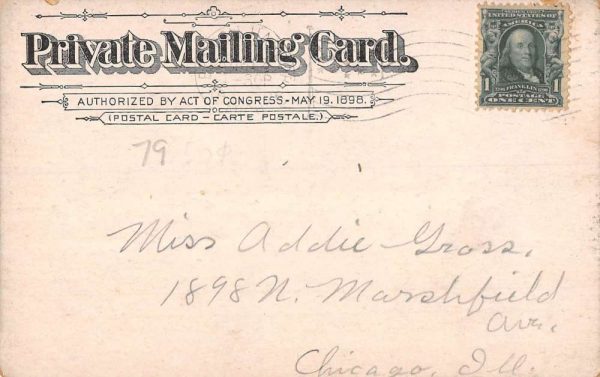 Private Mailing Card.
AUTHORIZED BY ACT OF CONGRESS-MAY 19, 1898.
(POSTAL CARD - CARTE POSTALE.)
UNITED STATES OF
AMERICA
1 FRANKLIN 1
POSTAGE
ONE CENT
79
Miss Addie Gross,
1898 N. Marshfield
Ave.
Chicago, Ill.